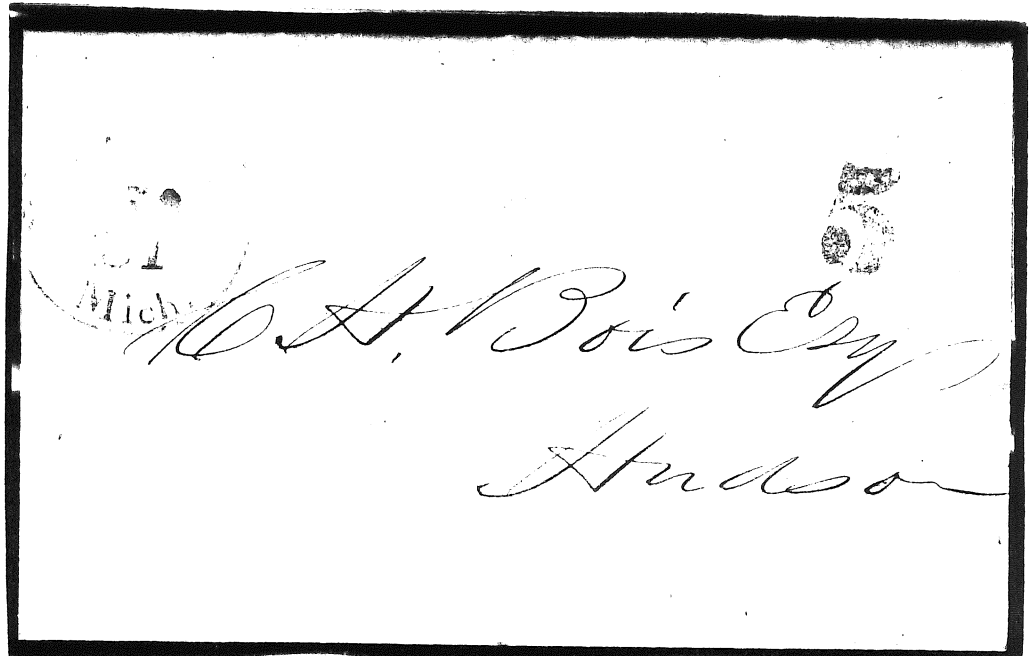 5
Mich
C H. Bois Esq
Hudson